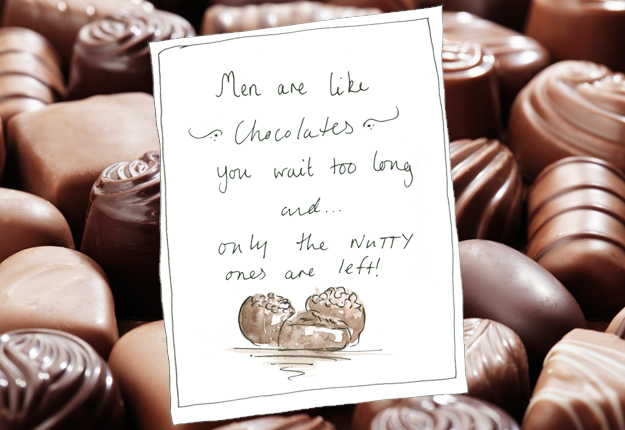 Men are like
Chocolates
you wait too long
and...
only the NUTTY
ones are left!